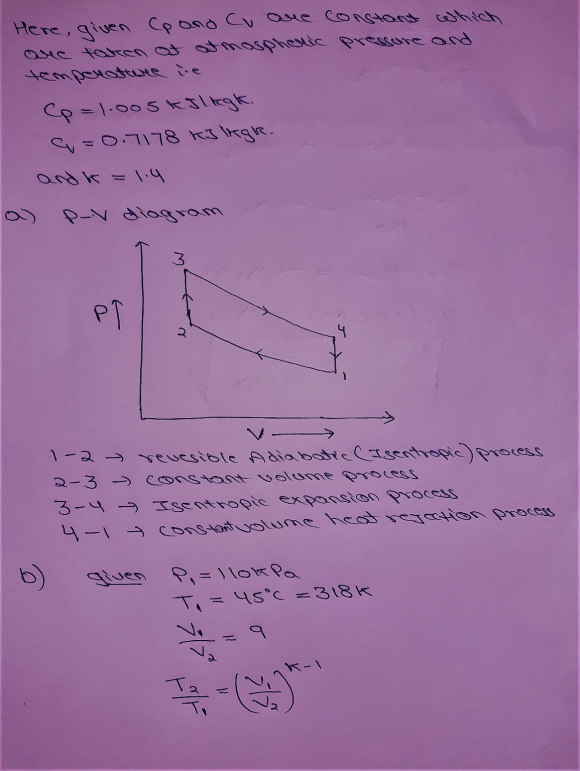 Here, given Cp and Cv are constant which
are taken at atmospheric pressure and
temperature i.e
Cp = 1.005 kJ/kgk.
Cv = 0.7178 kJ/kgk.
and k = 1.4
a) P-V diagram
3
P↑
4
2
1
V →
1-2 → revesible Adiabatic (Isentropic) process
2-3 → constant volume process
3-4 → Isentropic expansion process
4-1 → constant volume heat rejection process
b) given P₁ = 110kPa
T₁ = 45°C = 318K
V₁/V₂ = 9
T₂/T₁ = (V₁/V₂)^K-1